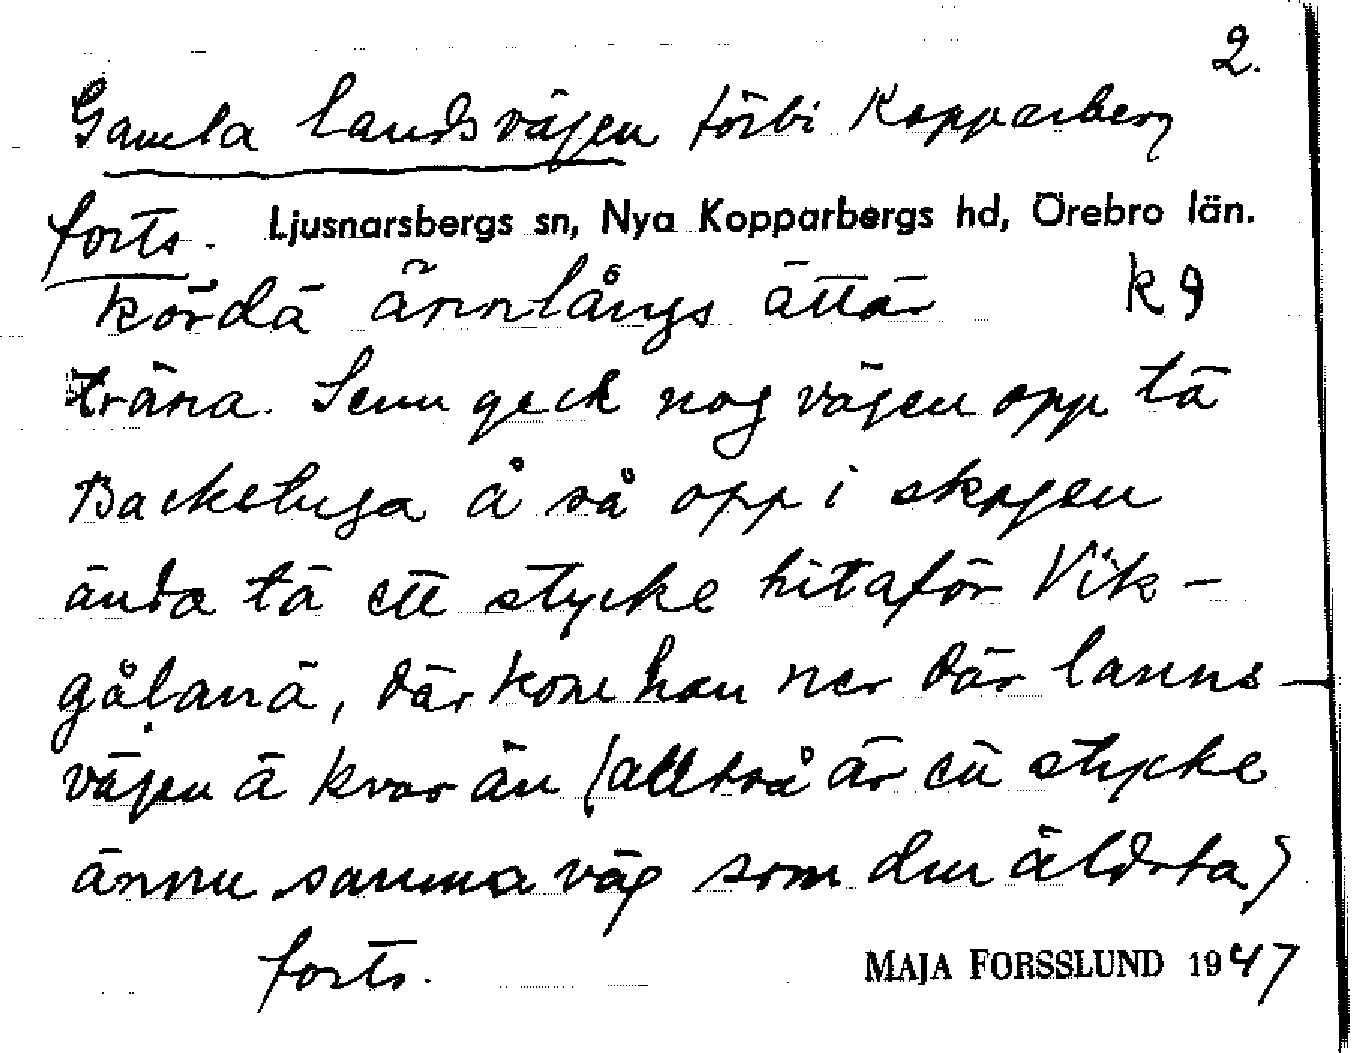 2.
Gamla landsvägen förbi Kopparberg
forts. Ljusnarsbergs sn, Nya Kopparbergs hd, Örebro län.
kördä ännlångs ättär
träna. Senn geck nog vägen opp tä
Backetuga å så opp i skogen
ända tä ett stycke hitaför Vik-
gåḷanä, där kom han ner där lanns-
vägen ä kvar än (alltså är ett stycke
ännu samma väg som den äldsta)
forts. MAJA FORSSLUND 1947